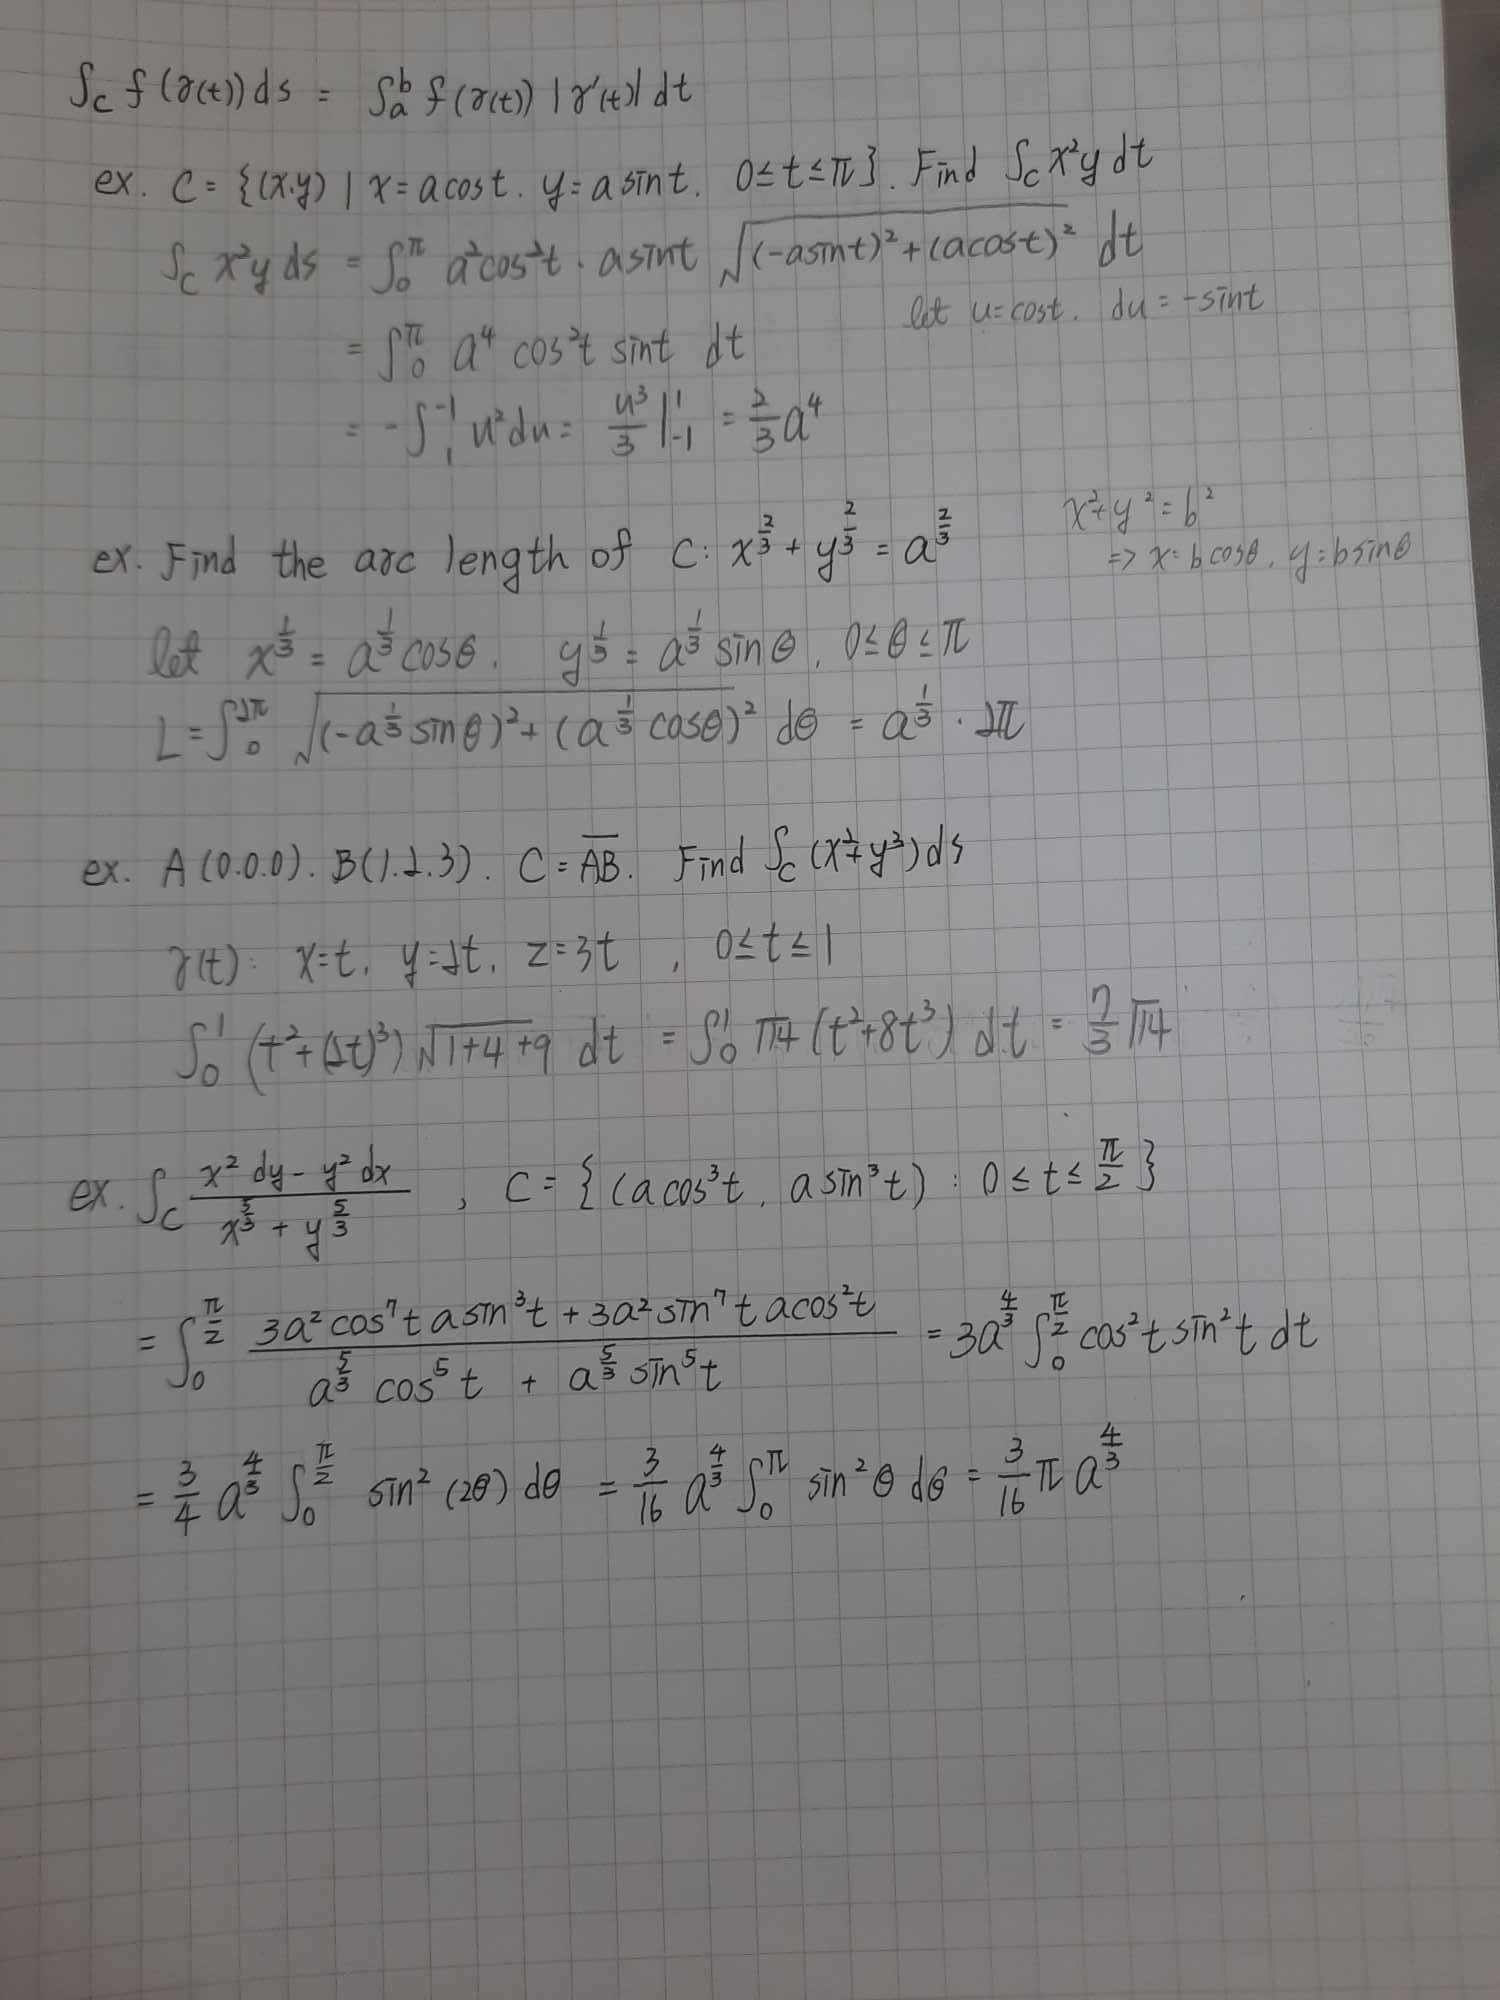 ∫_C f(r(t)) ds = ∫_a^b f(r(t)) |r'(t)| dt
ex. C = {(x.y) | x = a cos t. y = a sin t. 0 ≤ t ≤ π}. Find ∫_C x²y dt
∫_C x²y ds = ∫_0^π a²cos²t · a sin t √((-a sin t)² + (a cos t)²) dt
let u = cos t. du = -sin t
= ∫_0^π a⁴ cos²t sin t dt
= -∫_1^{-1} u² du = u³/3 |_{-1}^1 = 2/3 a⁴
ex. Find the arc length of C: x^{2/3} + y^{2/3} = a^{2/3}
x² + y² = b²
=> x = b cosθ. y = b sinθ
let x^{1/3} = a^{1/3} cosθ. y^{1/3} = a^{1/3} sinθ. 0 ≤ θ ≤ π
L = ∫_0^{2π} √((-a^{1/3} sinθ)² + (a^{1/3} cosθ)²) dθ = a^{1/3} · 2π
ex. A(0.0.0). B(1.2.3). C = \overline{AB}. Find ∫_C (x² + y³) ds
r(t): x = t. y = 2t. z = 3t , 0 ≤ t ≤ 1
∫_0^1 (t² + (2t)³) √(1+4+9) dt = ∫_0^1 √14 (t² + 8t³) dt = 7/3 √14
ex. ∫_C (x² dy - y² dx)/(x^{5/3} + y^{5/3}) , C = {(a cos³t, a sin³t) : 0 ≤ t ≤ π/2}
= ∫_0^{π/2} (3a² cos⁷t a sin³t + 3a² sin⁷t a cos²t)/(a^{5/3} cos⁵t + a^{5/3} sin⁵t) = 3a^{4/3} ∫_0^{π/2} cos²t sin²t dt
= 3/4 a^{4/3} ∫_0^{π/2} sin²(2θ) dθ = 3/16 a^{4/3} ∫_0^π sin²θ dθ = 3/16 π a^{4/3}